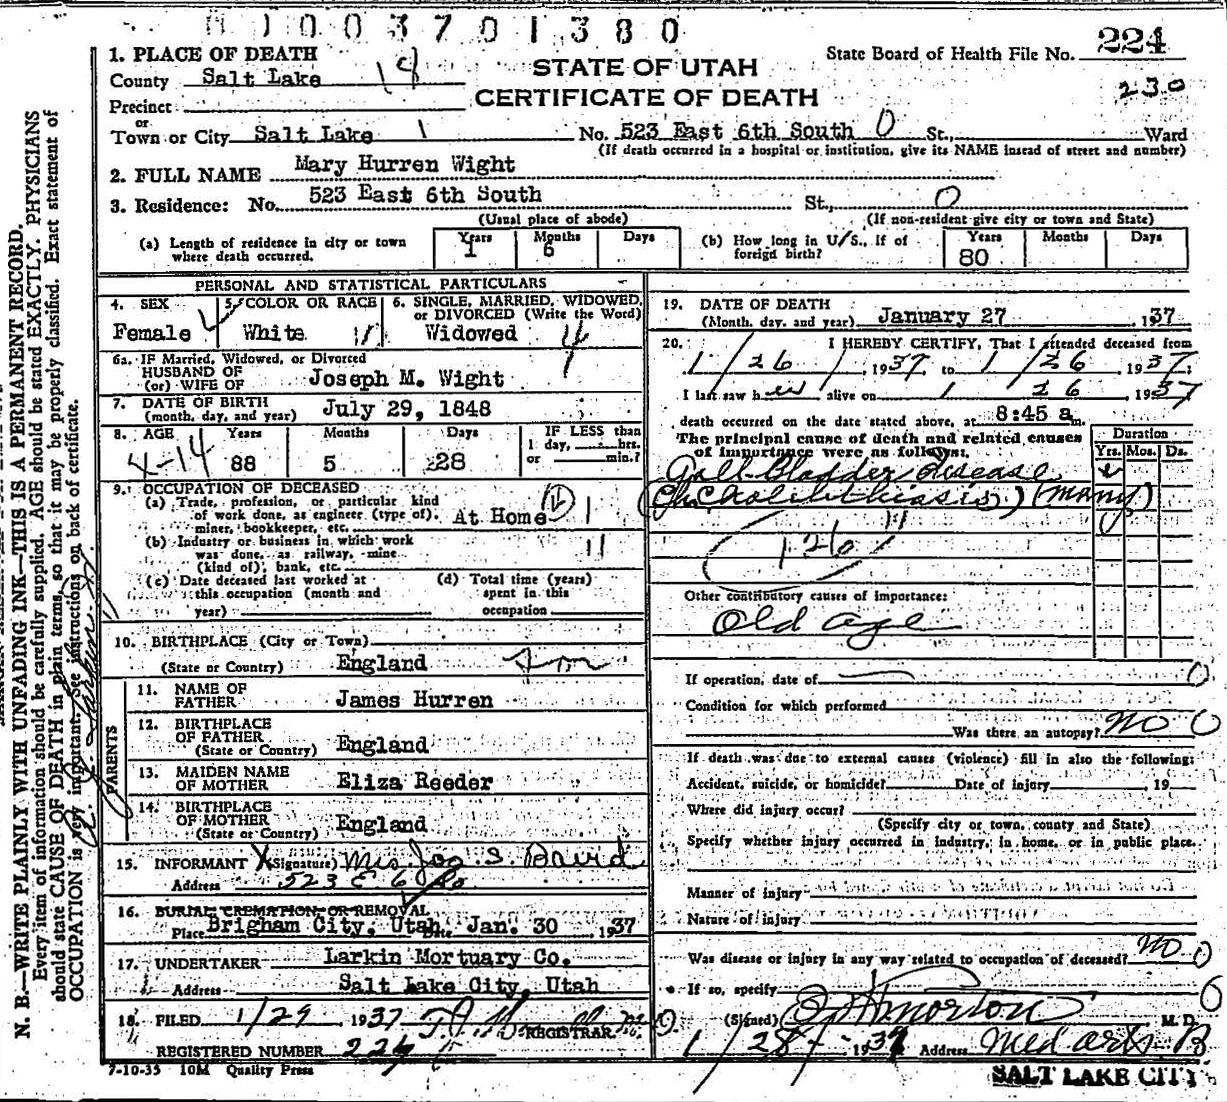 01003701380
1. PLACE OF DEATH
County Salt Lake 19
STATE OF UTAH
CERTIFICATE OF DEATH
State Board of Health File No. 224
230
Precinct
or
Town or City Salt Lake 1 No. 523 East 6th South 0 St. Ward
(If death occurred in a hospital or institution, give its NAME instead of street and number)
2. FULL NAME Mary Hurren Wight
3. Residence: No. 523 East 6th South St., 0
(Usual place of abode) (If non-resident give city or town and State)
(a) Length of residence in city or town where death occurred. Years 1 Months 6 Days
(b) How long in U/S., If of foreign birth? Years 80 Months Days
PERSONAL AND STATISTICAL PARTICULARS
4. SEX Female
5. COLOR OR RACE White
6. SINGLE, MARRIED, WIDOWED, or DIVORCED (Write the Word) Widowed 4
6a. IF Married, Widowed, or Divorced
HUSBAND OF
(or) WIFE OF Joseph M. Wight
7. DATE OF BIRTH
(month, day, and year) July 29, 1848
8. AGE Years 88 Months 5 Days 28 IF LESS than 1 day, hrs. or min.?
4-14
9. OCCUPATION OF DECEASED
(a) Trade, profession, or particular kind
of work done, as engineer (type of),
miner, bookkeeper, etc. At Home
(b) Industry or business in which work
was done, as railway, mine
(kind of), bank, etc.
(c) Date deceased last worked at
this occupation (month and
year)
(d) Total time (years)
spent in this
occupation
10. BIRTHPLACE (City or Town)
(State or Country) England
PARENTS
11. NAME OF
FATHER James Hurren
12. BIRTHPLACE
OF FATHER
(State or Country) England
13. MAIDEN NAME
OF MOTHER Eliza Reeder
14. BIRTHPLACE
OF MOTHER
(State or Country) England
15. INFORMANT X (Signature) Mrs. Jos S. Baird
Address 523 E 6 So
16. BURIAL CREMATION OR REMOVAL
Place Brigham City, Utah Jan. 30 1937
17. UNDERTAKER Larkin Mortuary Co.
Address Salt Lake City, Utah
18. FILED 1/29 1937 REGISTRAR
REGISTERED NUMBER 224
7-10-35 10M Quality Press
19. DATE OF DEATH
(Month, day, and year) January 27 1937
20. I HEREBY CERTIFY, That I attended deceased from
1/26/, 1937, to 1/26 1937;
I last saw her alive on 1 26 1937
death occurred on the date stated above, at 8:45 a m.
The principal cause of death and related causes
of importance were as follows:
Duration
Yrs. Mos. Ds.
Gall Bladder disease
(Cholelithiasis) (many)
126
Other contributory causes of importance:
Old age
If operation, date of 0
Condition for which performed
Was there an autopsy? no 0
If death was due to external causes (violence) fill in also the following:
Accident, suicide, or homicide? Date of injury , 19
Where did injury occur?
(Specify city or town, county and State)
Specify whether injury occurred in industry, in home, or in public place.
Manner of injury
Nature of injury
Was disease or injury in any way related to occupation of deceased? no 0
If so, specify
(Signed) Morton M. D.
1/28/ 1937 Address Med arts B
SALT LAKE CITY
N. B.—WRITE PLAINLY WITH UNFADING INK—THIS IS A PERMANENT RECORD.
Every item of information should be carefully supplied. AGE should be stated EXACTLY. PHYSICIANS
should state CAUSE OF DEATH in plain terms, so that it may be properly classified. Exact statement of
OCCUPATION is very important. See instructions on back of certificate.